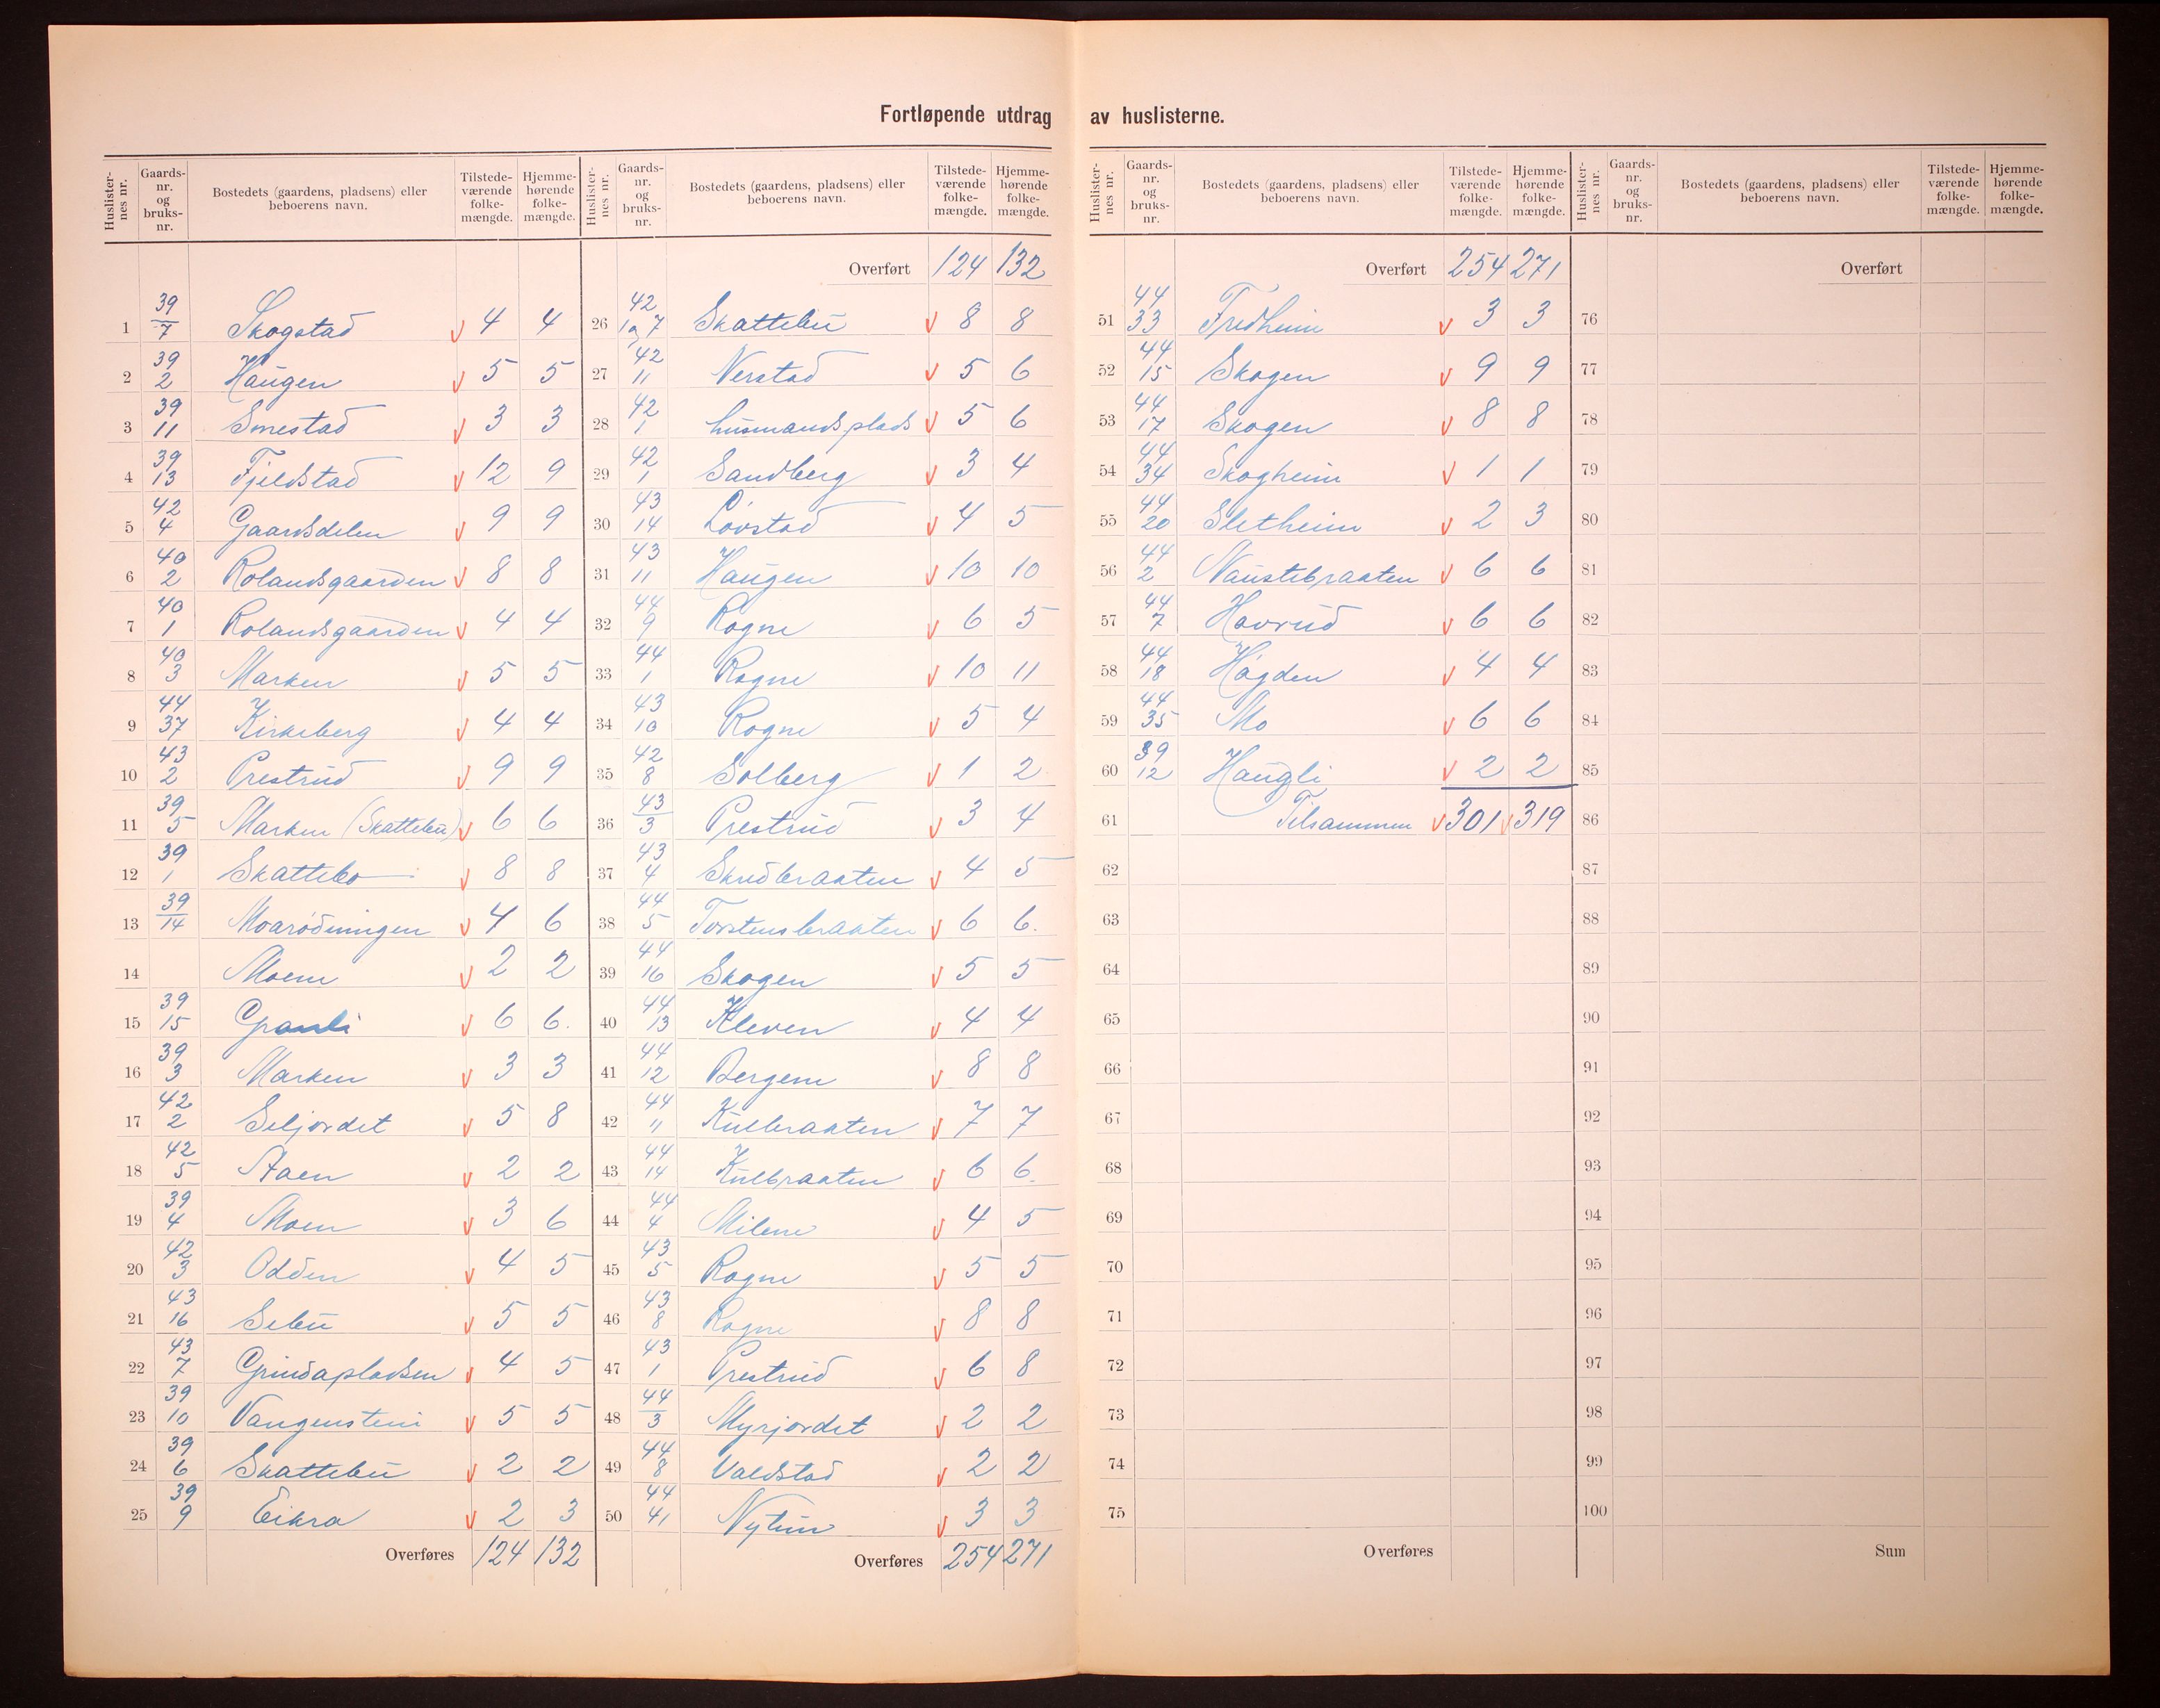 Fortløpende utdrag av huslisterne.
Huslister-nes nr. Gaards-nr. og bruks-nr. Bostedets (gaardens, pladsens) eller beboerens navn. Tilstede-værende folke-mængde. Hjemme-hørende folke-mængde.
1 39/7 Skogstad v 4 4
2 39 2 Haugen v 5 5
3 39 11 Smestad v 3 3
4 39 13 Fjeldstad v 12 9
5 42 4 Gaardsdelen v 9 9
6 40 2 Rolandsgaarden v 8 8
7 40 1 Rolandsgaarden v 4 4
8 40 3 Marken v 5 5
9 44 37 Kirkeberg v 4 4
10 43 2 Prestrud v 9 9
11 39 5 Marken (Skattebu) v 6 6
12 39 1 Skattebo v 8 8
13 39/14 Moarødningen v 4 6
14 Moen v 2 2
15 39 15 Granli v 6 6.
16 39 3 Marken v 3 3
17 42 2 Seljordet v 5 8
18 42 5 Staen v 2 2
19 39 4 Moen v 3 6
20 42 3 Odden v 4 5
21 43 16 Sebu v 5 5
22 43 7 Grindapladsen v 4 5
23 39 10 Vangenstein v 5 5
24 39 6 Skattebu v 2 2
25 39 9 Eikra v 2 3
Overføres 124 132
Huslister-nes nr. Gaards-nr. og bruks-nr. Bostedets (gaardens, pladsens) eller beboerens navn. Tilstede-værende folke-mængde. Hjemme-hørende folke-mængde.
Overført 124 132
26 42 1 og 7 Skattebu v 8 8
27 42 11 Nerstad v 5 6
28 42 1 husmandsplads v 5 6
29 42 1 Sandberg v 3 4
30 43 14 Lovstad v 4 5
31 43 11 Haugen v 10 10
32 44 9 Rogne v 6 5
33 44 1 Rogne v 10 11
34 43 10 Rogne v 5 4
35 42 8 Solberg v 1 2
36 43/3 Prestrud v 3 4
37 43 4 Skudbraaten v 4 5
38 44 5 Torstensbraaten v 6 6.
39 44 16 Skogen v 5 5
40 44 13 Kleven v 4 4
41 44 12 Bergene v 8 8
42 44 11 Kulbraaten v 7 7
43 44 14 Kulbraaten v 6 6.
44 44 4 Milene v 4 5
45 43 5 Rogne v 5 5
46 43 8 Rogne v 8 8
47 43 1 Prestrud v 6 8
48 44/3 Myrjordet v 2 2
49 44 8 Valdstad v 2 2
50 44 41 Nytun v 3 3
Overføres 254 271
Huslister-nes nr. Gaards-nr. og bruks-nr. Bostedets (gaardens, pladsens) eller beboerens navn. Tilstede-værende folke-mængde. Hjemme-hørende folke-mængde.
Overført 254 271
51 44 33 Fredheim v 3 3
52 44 15 Skogen v 9 9
53 44 17 Skogen v 8 8
54 44 34 Skogheim v 1 1
55 44 20 Sletheim v 2 3
56 44 2 Naustebraaten v 6 6
57 44 7 Havrud v 6 6
58 44 18 Høgden v 4 4
59 44 35 Mo v 6 6
60 39 12 Haugli v 2 2
61 Tilsammen v 301 v 319
62
63
64
65
66
67
68
69
70
71
72
73
74
75
Overføres
Huslister-nes nr. Gaards-nr. og bruks-nr. Bostedets (gaardens, pladsens) eller beboerens navn. Tilstede-værende folke-mængde. Hjemme-hørende folke-mængde.
Overført
76
77
78
79
80
81
82
83
84
85
86
87
88
89
90
91
92
93
94
95
96
97
98
99
100
Sum